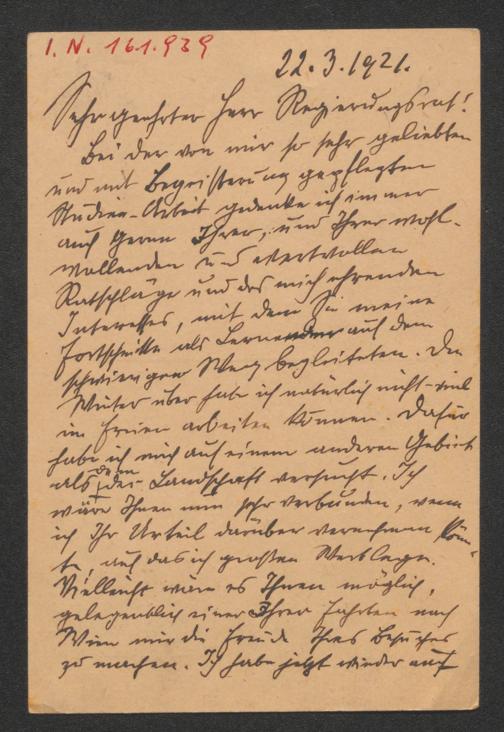 I. N. 161.939
22.3.1921.
Sehr geehrter Herr Regierungsrat!
Bei der von mir so sehr geliebten
und mit Begeisterung gepflegten
Studien-Arbeit gedenke ich immer
auch gerne Ihrer, und Ihrer wohl-
wollenden und wertvollen
Ratschläge und des mich ehrenden
Interesses, mit dem Sie meine
Fortschritte als Lernender auf dem
schwierigen Weg begleiteten. Den
Winter über habe ich natürlich nicht viel
im Freien arbeiten können. Dafür
habe ich mich auf einem anderen Gebiet
als dem der Landschaft versucht. Ich
wäre Ihnen nun sehr verbunden, wenn
ich Ihr Urteil darüber vernehmen könn-
te, auf das ich großen Wert lege.
Vielleicht wäre es Ihnen möglich,
gelegentlich einer Ihrer Fahrten nach
Wien mir die Freude Ihres Besuches
zu machen. Ich habe jetzt wieder auf